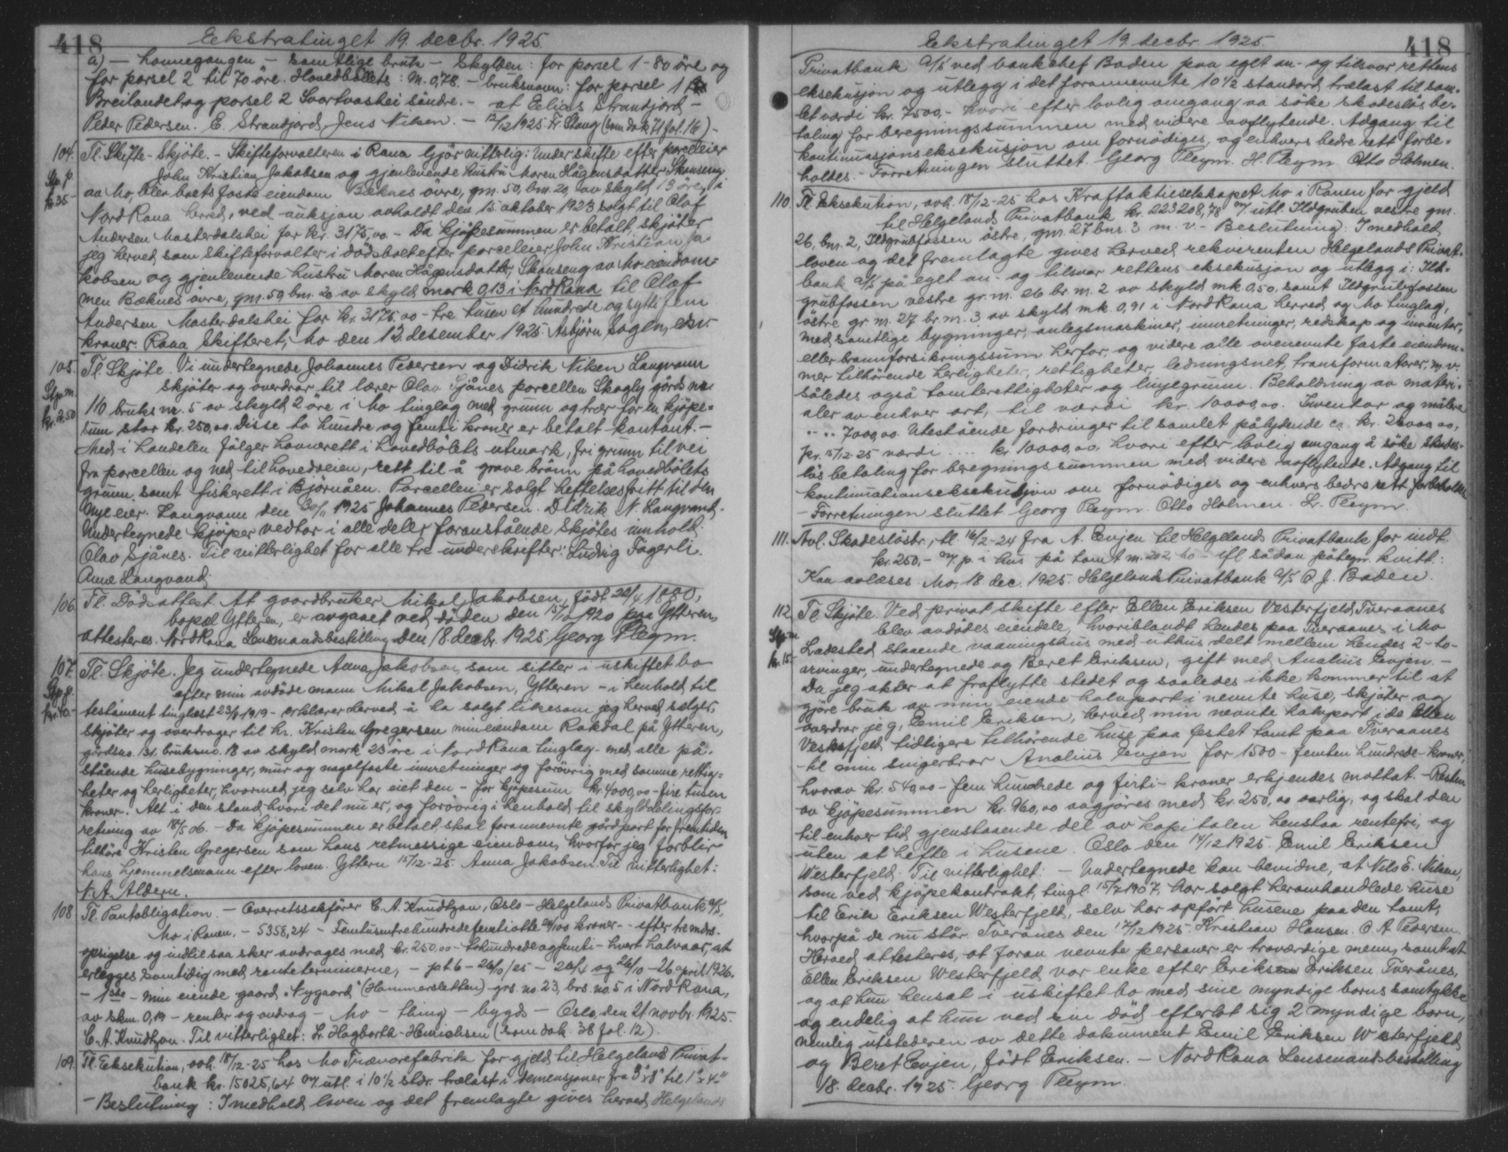 418
Ekstratinget 19. decbr. 1925.
a) — Lonnegangen — samtlige bruk — Skylden: for parsel 1 - 80 öre og
for parsel 2 til 70 öre. Hovedbølets: M. 0,78. — bruksnavn: for parsel 1
Breilandet og parsel 2 Svartvashei söndre. — at Eelias Strandjord —
Peder Pedersen. E. Strandjord, Jens Nilsen. — 12/12 1925 Fr. Skaug (som dok 71 fol. 16) —
104. Tl. Skifte-Skjöte. — Skifteforvalteren i Rana Gjör vitterlig: Under skifte efter parceleier
John Kristian Jakobsen og gjenlevende hustru Maren Hågensdatter Skanseng
aa Mo, blev boets faste eiendom Bæknes övre, gm. 50, bm. 20, av skyld 13 öre, i
Nord Rana herred, ved auksjon avholdt den 15 oktober 1923 solgt til Olaf
Andersen Masterdalshei for kr. 3175,00 — Da kjöpesummen er betalt, skjöter
jeg herved som skifteforvalter i dödsboet efter parceleier John Kristian Ja-
kobsen og gjenlevende hustru Maren Hågensdatter, Skanseng av Mo eiendom-
men Bæknes övre, gm. 50 bm. 20 av skyld mark 0,13 i Nord Rana til Olaf
Andersen Masterdalshei for kr. 3175,00 — tre tusen et hundrede og sytti fem
kroner. Rana skifteret, Mo den 12 desember 1925. Asbjörn Logen, edsv.
105. Tl. Skjöte. Vi undertegnede Johannes Pedersen og Didrik Nilsen Langvann
skjöter og overdrar til lærer Olav Sjånes porcellen Skogly gårds nr.
110 bruks nr. 5 av skyld 2 öre i Mo tinglag med grunn og trær for en kjöpe-
sum stor kr. 250,00. Disse to hundre og femti kroner er betalt kontant. —
Med i handelen fölger havnerett i hovedbölets utmark, fri grunn til vei
fra porcellen og ned til hovedveien, rett til å grave brönn på hovedbölets
grunn, samt fiskerett i Björnåen. Porcellen er solgt heftelsesfritt til den
nye eier. Langvann den 30/11 1925 Johannes Pedersen. Didrik N. Langvand.
Undertegnede kjöper vedtar i alle deler foranstående skjötes innhold.
Olav Sjånes. Til vitterlighet for alle tre underskrifter: Ludvig Fagerli.
Anne Langvand.
106. Tl. Dödsattest. At gaardbruker Mikal Jakobsen, född 22/4 1850,
bopæl Ytteren, er avgaaet ved döden den 15/10 1920 paa Ytteren,
attesteres. Nord Rana Lensmandsbestilling den 18 decbr. 1925. Georg Pleym.
107. Tl. Skjöte. Jeg undertegnede Anna Jakobsen som sitter i uskiftet bo
efter min avdöde mann Mikal Jakobsen, Ytteren — i henhold til
testament tinglæst 23/9 1919 — erklærer herved å ha solgt likesom jeg herved sælger,
skjöter og overdrager til hr. Kristen Gregersen min eiendom Rokdal på Ytteren,
gårdsno. 131 bruksno. 18 av skyld mark 23 öre i Nord Rana tinglag — med alle på-
stående husebygninger, mur og nagelfaste innretninger og forövrig med samme rettig-
heter og herligheter, hvormed jeg selv har eiet den — for kjöpesum kr. 4000,00 — fire tusen
kroner. Alt i den stand hvori det nu er, og forövrig i henhold til skyldelingsfor-
retning av 18/5 06. — Da kjöpesummen er betalt skal forannevnte gårdpart for fremtiden
tilhöre Kristen Gregersen som hans retmessige eiendom, hvorfor jeg forblir
hans hjemmelsmann efter loven. Ytteren 15/12-25. Anna Jakobsen. Til vitterlighet:
N. A. Aldern.
108. Tl. Pantobligation. — Overretssakförer C. A. Knudtzon, Oslo — Helgelands Privatbank A/S,
Mo i Ranen. — 5358,24 — Femtusintrehundredefemtiotte 24/100 kroner. — efter tre mdrs.
opsigelse og indtil saa sker avdrages med kr. 250,00 — tohundredeogfemti — hvert halvaar, at
erlægges samtidig med renteterminerne, — pct 6 — 26/10/25 — 26/4 og 26/10 — 26 april 1926.
— 1ste — min eiende gaard "Nygaard" (Hammersletten) — grs. no 23, brs. no. 5 i Nord Rana,
av skm. 0,19 — renter og avdrag — Mo — thing — bygds — Oslo, den 21 novbr. 1925.
C. A. Knudtzon. Til vitterlighet: Lr. Hagbarth-Henrichsen (som dok 38 fol. 12).
109. Tl. Eksekution, avh. 18/12-25 hos Mo Trævarefabrik for gjeld til Helgelands Privat-
bank kr. 15025,64 m/ utl. i 10 1/2 stdr. trælast i demensjoner fra 3"x8" til 1"x4"
— Beslutning: I medhold loven og det fremlagte gives herved Helgelands
Ekstratinget 19. decbr. 1925.
418
Privatbank A/S ved bankchef Baden paa eget an- og tilsvar rettens
eksekusjon og utlegg i det forannevnte 10 1/2 standard trælast til sam-
let værdi kr. 7500,— hvori efter lovlig omgang aa söke skadeslös be-
taling for beregningssummen med videre avflytende. Adgang til
kontinuasjonseksekusjon om fornödiges, og enhvers bedre rett forbe-
holdes. — Forretningen sluttet. Georg Pleym. H. Pleym. Otto Holmen.
110. Tl. Eksekution, avh. 18/12-25 hos Kraftaktieselskapet Mo i Ranen for gjeld
til Helgelands Privatbank kr. 223208,78 m/ utl. Ildgruben vestre gm.
26, bm. 2, Ildgrubfossen östre, gm. 27 bm. 3 m. v. — Beslutning: I medhold
loven og det fremlagte gives herved rekvirenten Helgelands Privat-
bank A/S på eget an- og tilsvar rettens eksekusjon og utlegg i: Ild-
grubfossen vestre gr. m. 26 br. m. 2 av skyld mk. 0,50, samt Ildgrubfossen
östre gr. m. 27 br. m. 3 av skyld mk. 0,91 i Nord Rana herred og Mo tinglag,
med samtlige bygninger, anlegsmaskiner, innretninger, redskap og inventar,
eller brannforsikringssum herfor, og videre alle ovennevnte faste eiendom-
mer tilhörende herligheter, rettigheter, ledningsnet, transformatorer, m. v.
således også tomterettigheter og linjegrunn. Beholdning av materi-
aler av enhver art, til værdi kr. 10000,00. Inventar og målere
.. .. 7000,00. Utestående fordringer til samlet pålydende ca. kr. 25000,00,
pr. 15/12-25 værdi ... kr. 10000,00 hvori efter lovlig omgang å söke skades-
lös betaling for beregningssummen med videre avflytende. Adgang til
kontinuationseksekusjon om fornödiges og enhvers bedre rett forbeholdes
— Forretningen sluttet Georg Pleym. Otto Holmen. Lr. Pleym.
111. Avl. Skadeslöstr., tl. 16/2-24 fra A. Evjen til Helgelands Privatbank for indt.
kr. 250,— m/ p. i hus på tomt m. 202 Mo — ifl. sådan påtegn. kvitt.:
Kan avleses Mo, 18 dec. 1925. Helgelands Privatbank A/S O. J. Baden.
112. Tl. Skjöte. Ved privat skifte efter Ellen Eriksen Vesterfjeld, Tveraanes
blev avdödes eiendele, hvoriblandt hendes paa Tveraanes i Mo
Ladested staaende vaaningshus med uthus delt mellem hendes 2-to-
arvinger, undertegnede og Beret Eriksen, gift med Analius Evjen. —
Da jeg akter at fraflytte stedet og saaledes ikke kommer til at
gjöre bruk av min eiende halvpart i nevnte huse, skjöter og
overdrar jeg, Emil Eriksen, herved min nevnte halvpart i de Ellen
Vesterfjeld tidligere tilhörende huse paa festet tomt paa Tveraanes
til min svigerbror Analius Evjen for 1500 — femten hundrede — kroner,
hvorav kr. 540,00 — fem hundrede og förti — kroner erkjendes mottat. — Resten
av kjöpesummen kr. 960,00 avgjöres med kr. 250,00 aarlig, og skal den
til enhver tid gjenstaaende del av kapitalen henstaa rentefri, og
uten at hefte i husene. Oslo den 11/12 1925. Emil Eriksen
Westerfjeld. Til vitterlighet: — Undertegnede kan bevidne, at Nils E. Nilsen,
som ved kjöpekontrakt, tingl. 15/2 1907, har solgt heromhandlede huse
til Erik Eriksen Westerfjeld, selv har opfört husene paa den tomt,
hvorpå de nu står. Tverånes den 17/12 1925. Kristian Hansen. O. A. Pedersen.
Herved attesteres, at foran nevnte personer er troværdige menn, samt at
Ellen Eriksen Westerfjeld var enke efter Erik Eriksen Tverånes,
og at hun hensat i uskiftet bo med sine myndige barns samtykke
og endelig at hun ved sin död efterlot sig 2 myndige barn,
nemlig utstederen av dette dokument Emil Eriksen Westerfjeld
og Beret Evjen, född Eriksen. — Nord Rana Lensmandsbestilling
18. decbr. 1925. Georg Pleym.